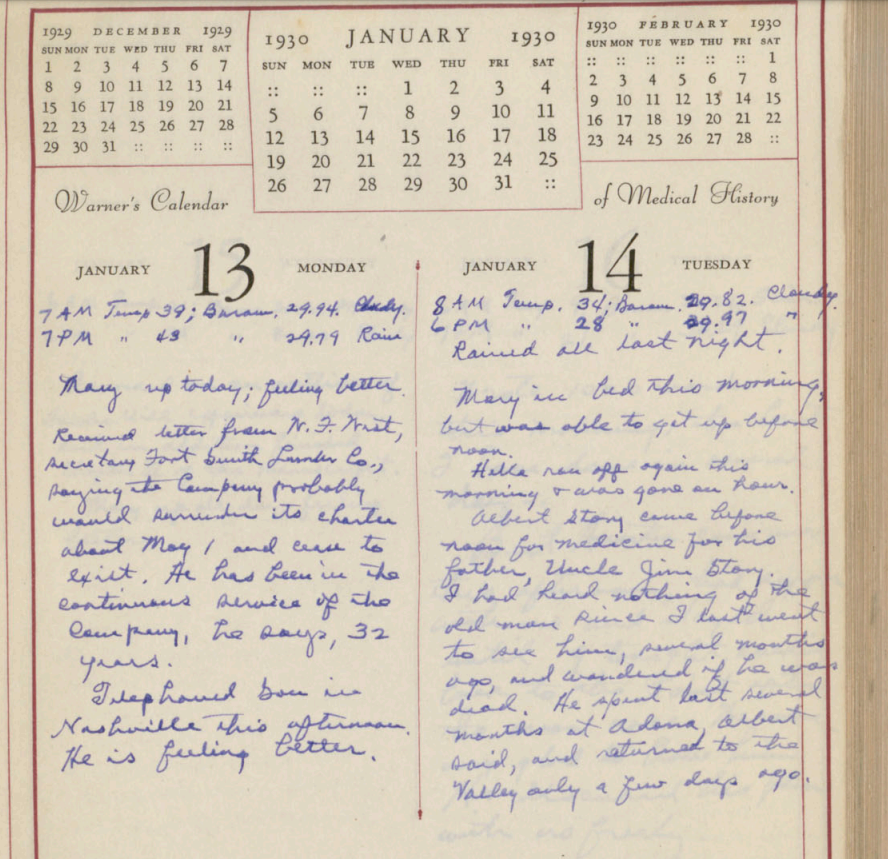 1929 DECEMBER 1929
SUN MON TUE WED THU FRI SAT
1 2 3 4 5 6 7
8 9 10 11 12 13 14
15 16 17 18 19 20 21
22 23 24 25 26 27 28
29 30 31 :: :: :: ::
1930 JANUARY 1930
SUN MON TUE WED THU FRI SAT
:: :: :: 1 2 3 4
5 6 7 8 9 10 11
12 13 14 15 16 17 18
19 20 21 22 23 24 25
26 27 28 29 30 31 ::
1930 FEBRUARY 1930
SUN MON TUE WED THU FRI SAT
:: :: :: :: :: :: 1
2 3 4 5 6 7 8
9 10 11 12 13 14 15
16 17 18 19 20 21 22
23 24 25 26 27 28 ::
Warner's Calendar
of Medical History
JANUARY 13 MONDAY
7 AM Temp 39; Barom. 29.94. Cloudy.
7 PM " 43 " 29.79 Rain
Mary up today; feeling better.
Received letter from N. F. West,
secretary Fort Smith Lumber Co.,
saying the Company probably
would surrender its charter
about May 1 and cease to
exist. He has been in the
continuous service of the
Company, he says, 32
years.
Telephoned Son in
Nashville this afternoon.
He is feeling better.
JANUARY 14 TUESDAY
8 AM Temp. 34; Barom. 29.82. Cloudy.
6 PM " 28 " 29.97 "
Rained all last night.
Mary in bed this morning,
but was able to get up before
noon.
ran off again this
morning & was gone an hour.
Albert Story came before
noon for medicine for his
father, Uncle Jim Story.
I had heard nothing of the
old man since I last went
to see him, several months
ago, and wondered if he was
dead. He spent last several
months at Adona, Albert
said, and returned to the
Valley only a few days ago.